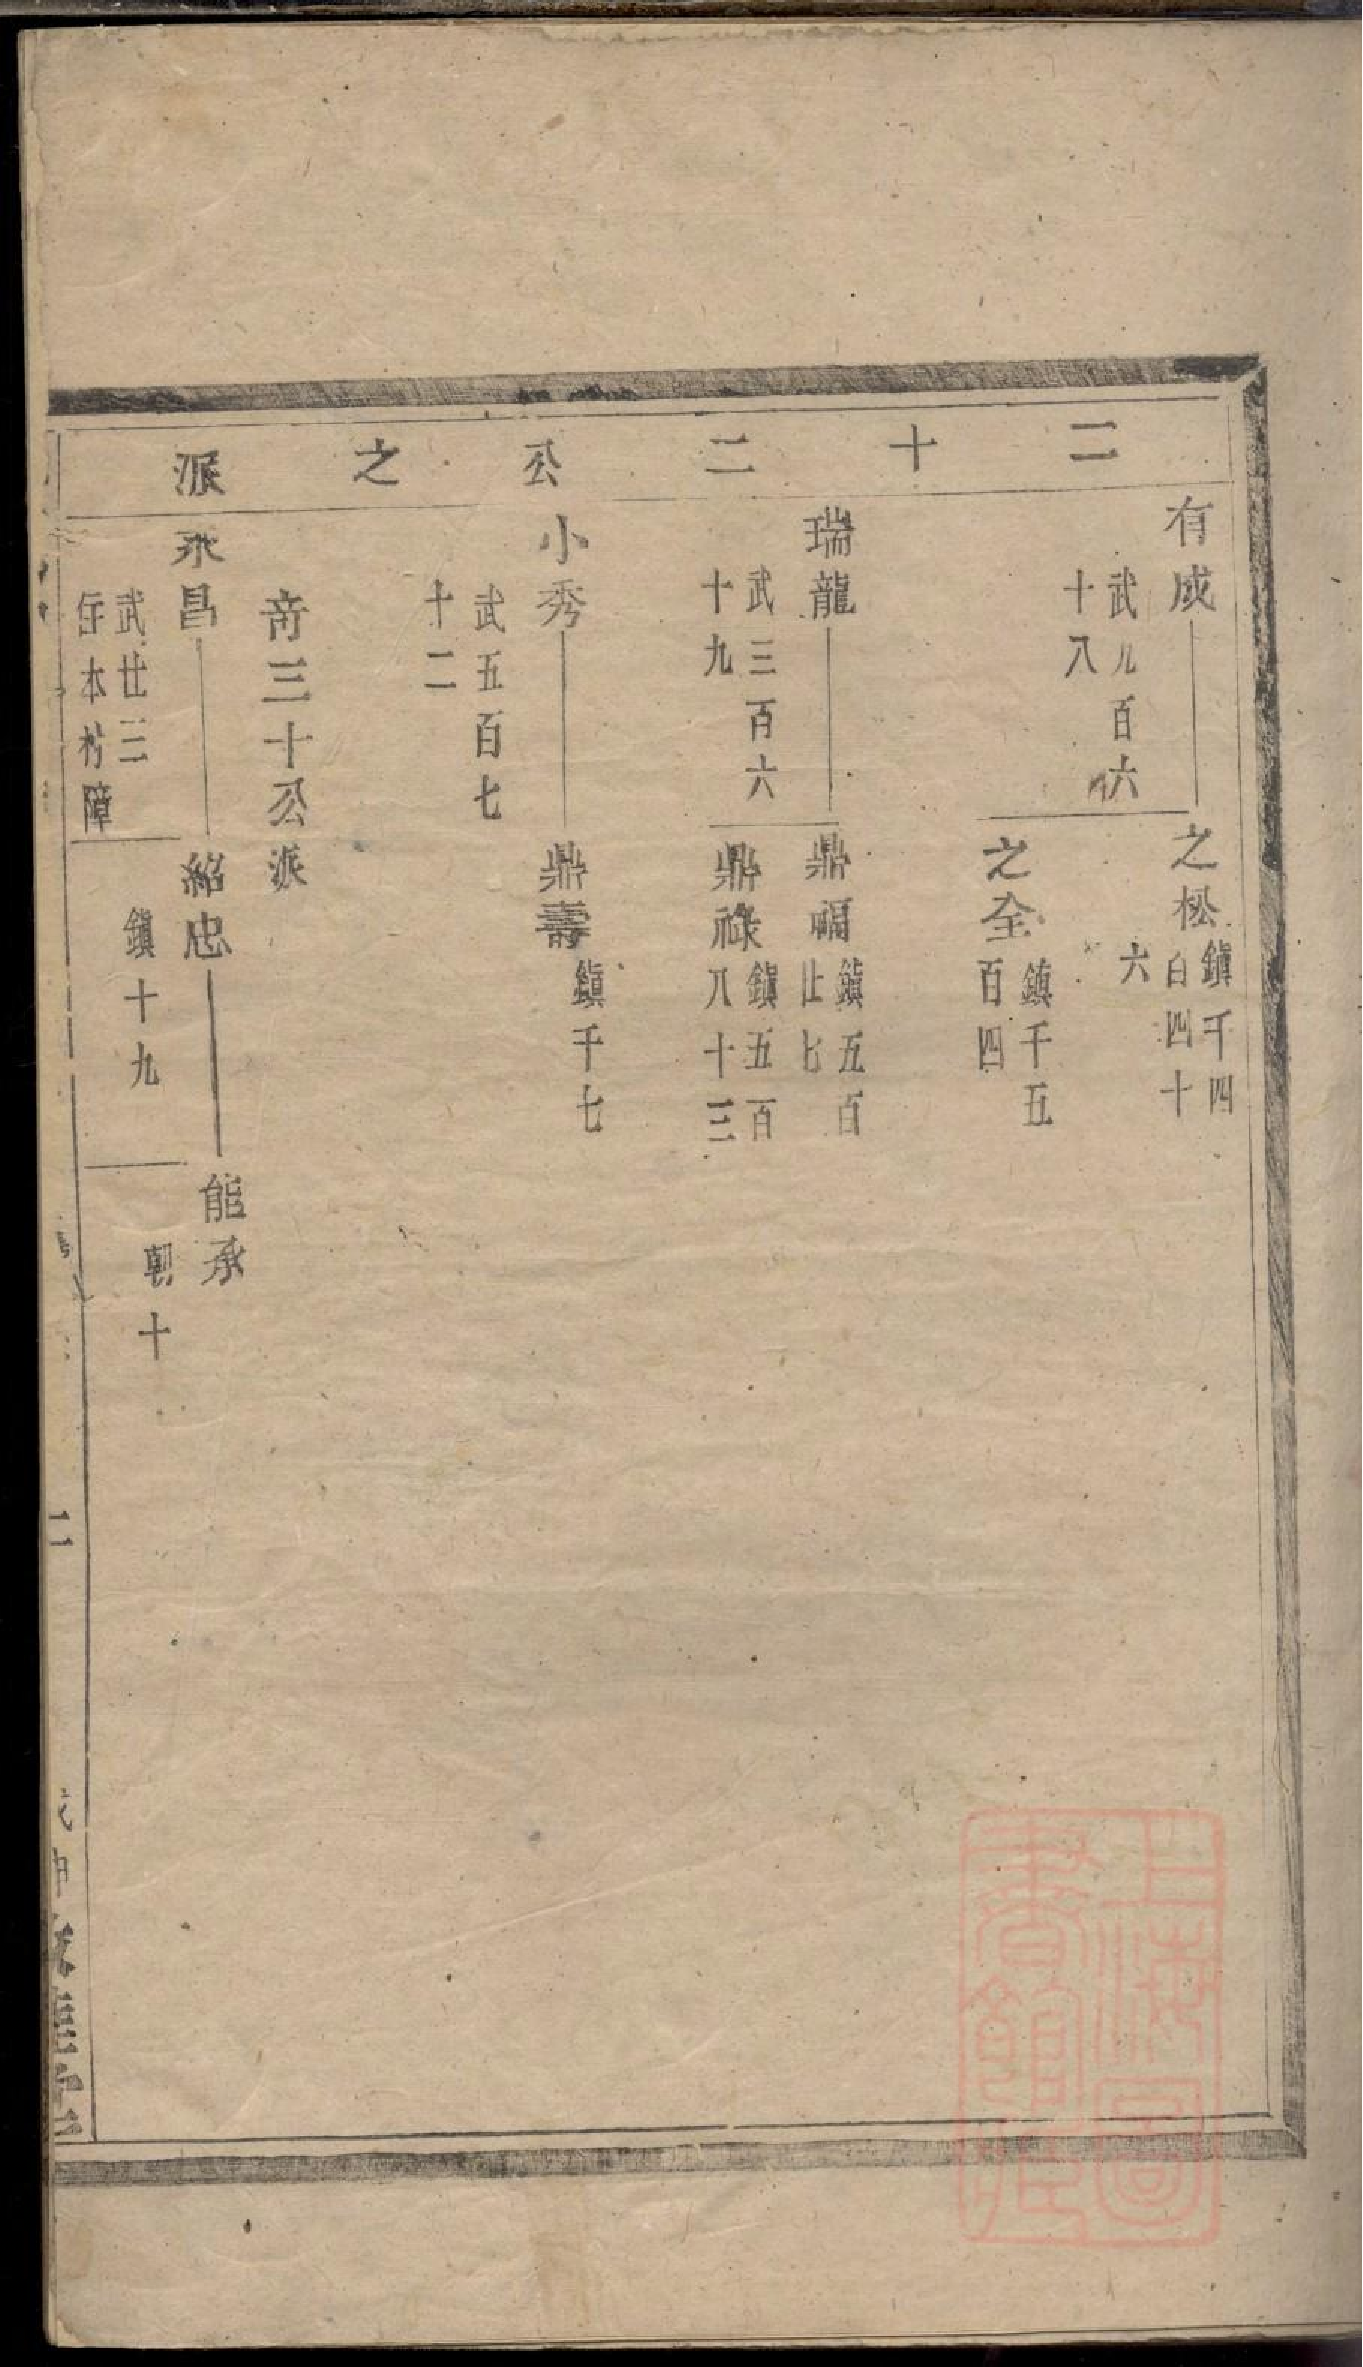 二十二公之派
有成
武九百六
十八
之松
鎮千四
百四十
六
之全
鎮千五
百四
瑞龍
武三百六
十九
鼎福
鎮五百
廿七
鼎祿
鎮五百
八十三
小秀
武五百七
十二
鼎壽
鎮千七
奇三十公派
永昌
武廿三
住本村障
紹忠
鎮十九
能承
朝十
二
上海圖
書館藏